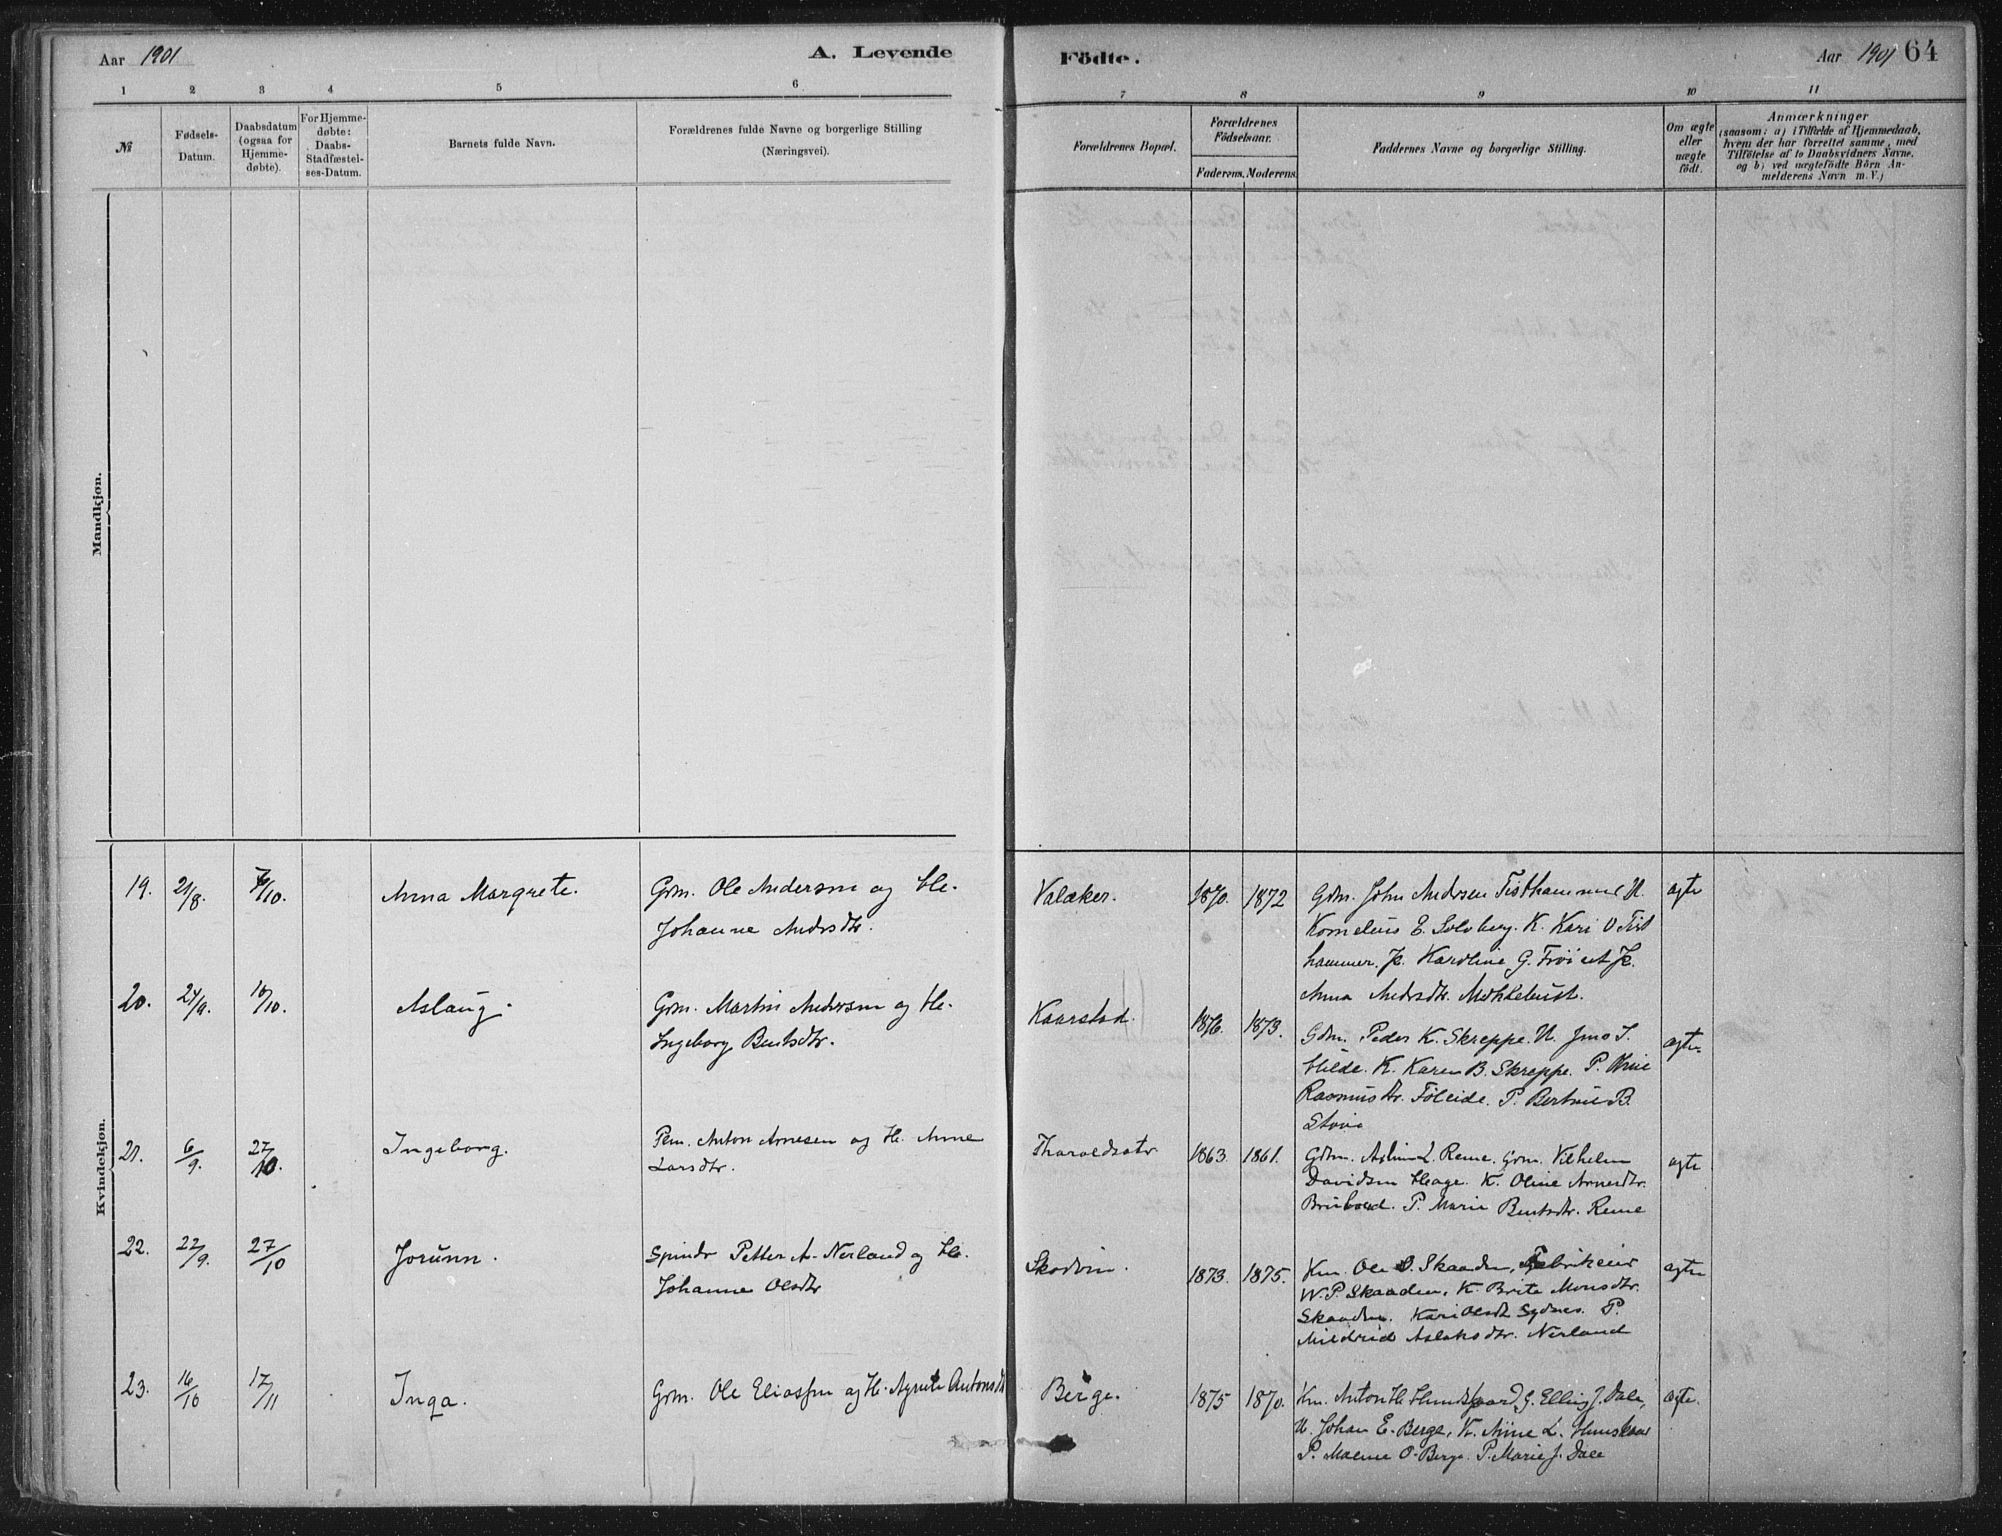 Aar 1901
A. Levende
Födte.
Aar 1901
64
1 2 3 4 5 6 7 8 9 10 11
№
Fødsels-
Datum.
Daabsdatum
(ogsaa for
Hjemme-
døbte).
For Hjemme-
døbte:
Daabs-
Stadfæstel-
ses-Datum.
Barnets fulde Navn.
Forældrenes fulde Navne og borgerlige Stilling
(Næringsvei).
Forældrenes Bopæl.
Forældrenes
Födselsaar.
Faderens. Moderens.
Faddernes Navne og borgerlige Stilling.
Om ægte
eller
uægte
födt.
Anmærkninger
(saasom: a) i Tilfælde af Hjemmedaab,
hvem der har forrettet samme, med
Tilföielse af to Daabsvidners Navne,
og b) ved uægtefödte Börn An-
melderens Navn m. V.)
Mandkjøn.
Kvindekjøn.
19. 21/8. /10. Anna Margrete. Gdm. Ole Andersen og He.
Johanne Andrsdtr.
Valaker. 1870. 1872
Gdm. John Andrsen Tisthammer U.
Kornelius E. Solvberg. K. Kari O Tist
hammer. Je. Karoline G. Frøiset Je.
Anna Andrsdtr. Myklebust.
ægte
20. 24/9. 10/10. Aslaug. Gdm. Martin Andersen og He.
Ingeborg Bentsdtr.
Kaarstad. 1876. 1873.
Gdm. Peder K. Skreppe. U. Jens I.
Hilde. K. Karen B. Skreppe. P. Anne
Rasmusdtr. Føleide. P. Bertine B.
ægte.
21. 6/9. 27/10. Ingeborg. Pem. Anton Arnesen og H. Anne
Larsdtr.
Tharaldsætr 1863. 1861.
Gdm. L. Reme. Gdm. Vilhelm
Davidsen Hage. K. Oline Arnesdtr.
P. Marie Bentsdtr. Reme
ægte
22. 22/9. 27/10 Jorunn. Petter A. Nerland og He.
Johanne Olsdtr
Skodvin. 1873. 1875.
Km. Ole O. Skaaden, Fabrikeier
W. P. Skaaden, K. Brite Monsdtr.
Skaaden. Kari Olsdt Sydnes. P.
Mildrid Aslaksdtr. Nerland
ægte
23. 16/10 17/11 Inga. Gdm. Ole Eliassen og H. Agnete Antonsdtr
Berge. 1875 1870.
Km. Anton H Hundskaar, G. Elling J. Dale,
U. Johan E. Berge, K. Anne L. Hunskaar
P. Malene O. Berge. P. Marie J. Dale
ægte.